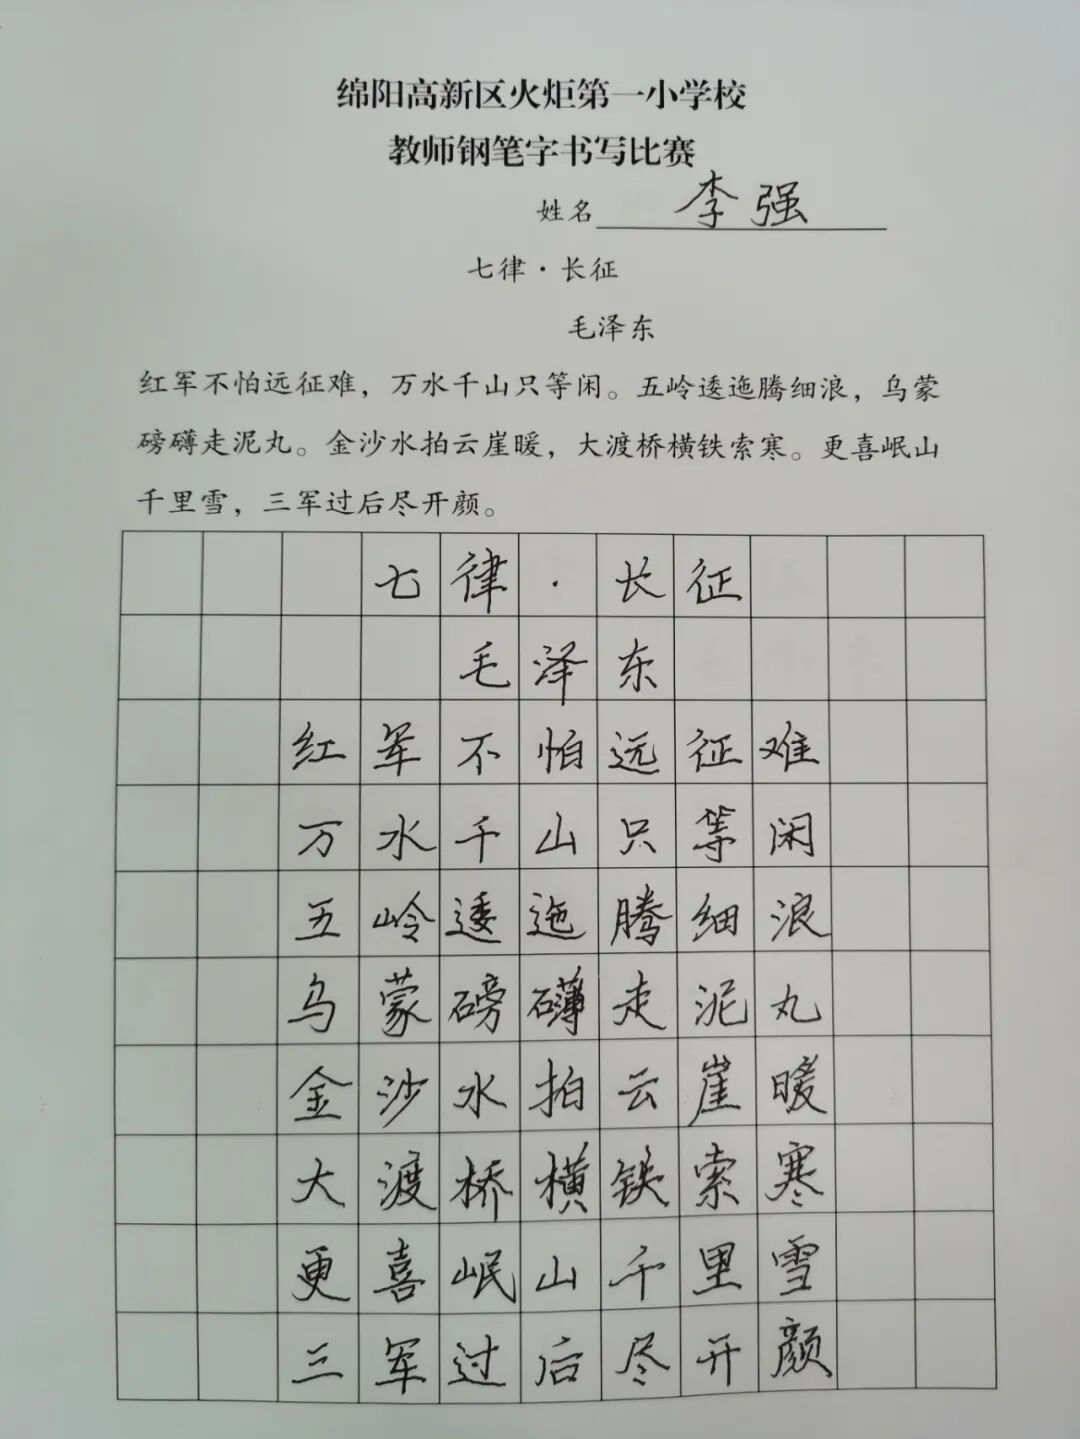 绵阳高新区火炬第一小学校
教师钢笔字书写比赛
姓名 李强
七律·长征
毛泽东
红军不怕远征难，万水千山只等闲。五岭逶迤腾细浪，乌蒙
磅礴走泥丸。金沙水拍云崖暖，大渡桥横铁索寒。更喜岷山
千里雪，三军过后尽开颜。
七律·长征
毛泽东
红军不怕远征难
万水千山只等闲
五岭逶迤腾细浪
乌蒙磅礴走泥丸
金沙水拍云崖暖
大渡桥横铁索寒
更喜岷山千里雪
三军过后尽开颜